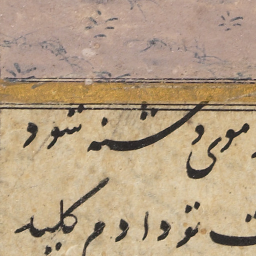 موی و شنه شود
تو دادم کلید